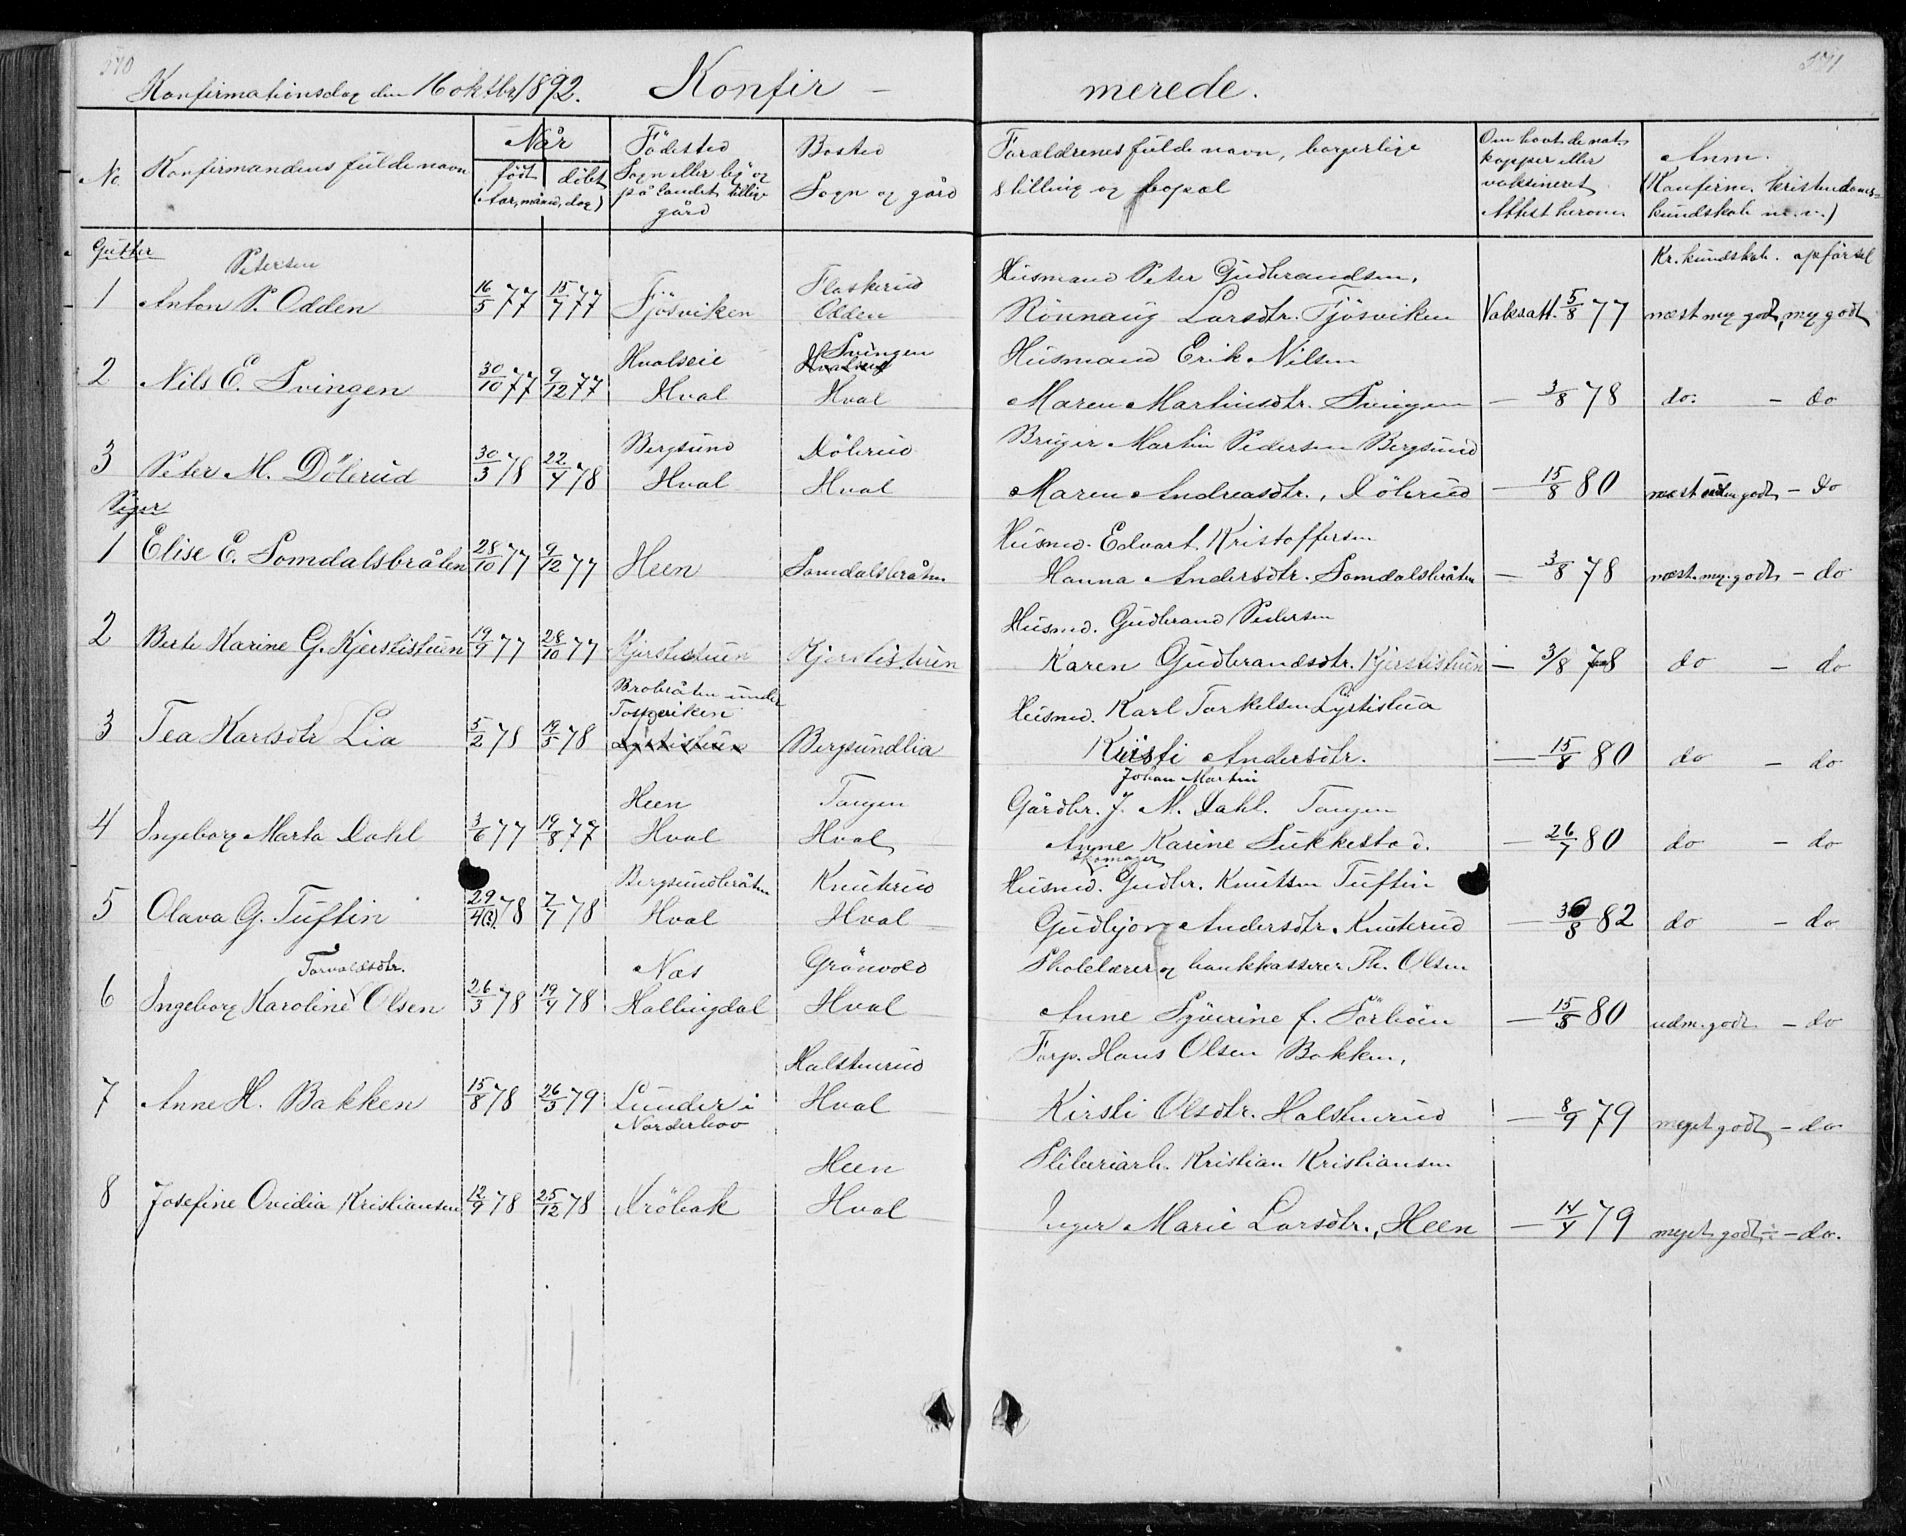 570
571
Konfirmationsdag den 16 oktbr 1892. Konfir - merede.
No. Konfirmandens fulde navn
Når
født døbt
(Aar, måned, dag)
Födested
Sogn eller by og
på landet tillige
gård
Bosted
Sogn og gård
Forældrenes fulde navn, borgerlige
stilling og bopæl
Om havt de nat.
kopper eller
vaksineret
Attest herom
Anm.
(Konfirm. kristendoms-
kundskab m.m.)
Gutter
Kr. kundskab. opförsel
Petersen Flaskerud Husmand Peter Gudbrandsen,
1 Anton P. Odden 16/5 77 15/7 77 Tjösviken Odden Rönnaug Larsdtr. Tjösviken Vaksatt. 5/8 77 næst my godt, my godt
Hvalseie Svingen Husmand Erik Nilsen
2 Nils E. Svingen 30/10 77 9/12 77 Hval Hval Maren Martinsdtr. Svingen — 3/8 78 do. - do
Bergsund Dölerud Bruger Martin Pedersen Bergsund
3 Peter M. Dölerud 30/3 78 22/4 78 Hval Hval Maren Andreasdtr., Dölerud — 15/8 80 næst udm godt - do
Piger
Husmd. Edvart Kristoffersen
1 Elise E. Somdalsbråten 28/10 77 9/12 77 Heen Somdalsbråten Hanna Andersdtr. Somdalsbråten — 3/8 78 næst my. godt - do
Husmd. Gudbrand Pedersen
2 Berte Karine G. Kjerstistuen 19/9 77 28/10 77 Kjerstistuen Kjerstistuen Karen Gudbrandsdtr. Kjerstistuen — 3/8 78 do - do
Brobråten under
Tosseviken Husmd. Karl Torkelsen Lystistua
3 Tea Karlsdtr Lia 5/2 78 19/5 78 Lystistuen Bergsundlia Kristi Andersdtr. — 15/8 80 do - do
Johan Martin
Heen Tangen Gårdbr. J. M. Dahl. Tangen
4 Ingeborg Marta Dahl 3/6 77 19/8 77 Hval Hval Anne Karine Sukkestad. — 26/7 80 do - do
skomager
Bergsundbråten Knuterud Husmd. Gudbr. Knutsen Tuftin
5 Olava G. Tuftin 29/4(3) 78 7/7 78 Hval Hval Gudbjorg Andersdtr. Knuterud — 30/8 82 do - do
Torvaldsdtr. Nes Grönvold Skolelærer og bankkasserer Th. Olsen
6 Ingeborg Karoline Olsen 26/3 78 19/4 78 Hallingdal Hval Anne Syverine f. Sörboen — 15/8 80 udm. godt - do
Halstenrud Forp. Hans Olsen Bakken,
7 Anne H. Bakken 15/8 78 26/5 79 Lunder i Hval Kirsti Olsdtr. Halstenrud — 8/9 79 meget godt - do
Norderhov
Heen Sliberiarb. Kristian Kristiansen
8 Josefine Ovidia Kristiansen 12/9 78 25/12 78 Dröbak Hval Inger Marie Larsdtr., Heen — 14/4 79 meget godt, ÷ - do.